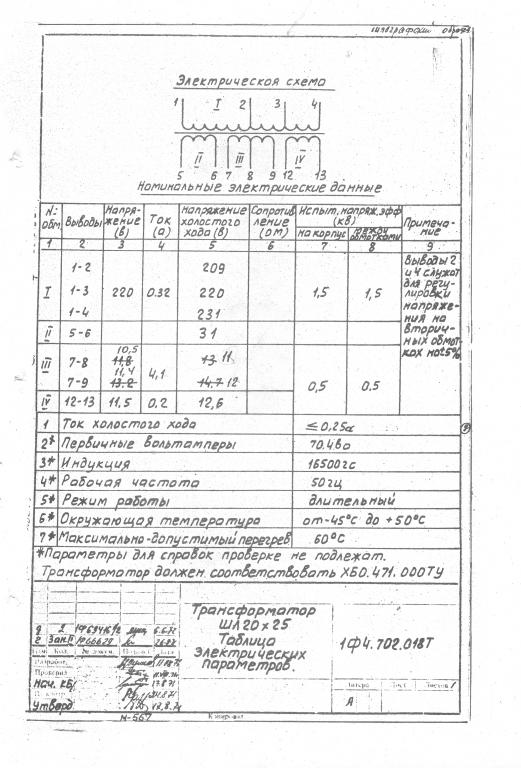 Электрическая схема
1 I 2 3 4
II III IV
5 6 7 8 9 12 13
Номинальные электрические данные
№ обм. Выводы Напряжение (в) Ток (а) Напряжение холостого хода (в) Сопротивление (ом) Испыт. напряж. эфф (кв) Примечание
на корпус между обмотками
1 2 3 4 5 6 7 8 9
1-2 209
I 1-3 220 0.32 220 1,5 1,5
1-4 231
II 5-6 31
III 7-8 10,5 11,8 4,1 13 11
7-9 11,4 13.2 14,7 12 0,5 0.5
IV 12-13 11,5 0.2 12,6
Выводы 2
и 4 служат
для регу-
лировки
напряже-
ния на
вторич-
ных обмот-
ках на ±5%
1 Ток холостого хода ≤ 0,25а
2* Первичные вольтамперы 70.4ва
3* Индукция 16500гс
4* Рабочая частота 50гц
5* Режим работы длительный
6* Окружающая температура от -45°С до +50°С
7* Максимально-допустимый перегрев 60°С
*Параметры для справок проверке не подлежат.
Трансформатор должен соответствовать ХБ0.471.000ТУ
Трансформатор
ШЛ20х25
Таблица
электрических
параметров.
1Ф4.702.018Т
Разработ.
Проверил
Нач. КБ
Утверд.
Литера Лист Листов 1
А
М-567 Копировал